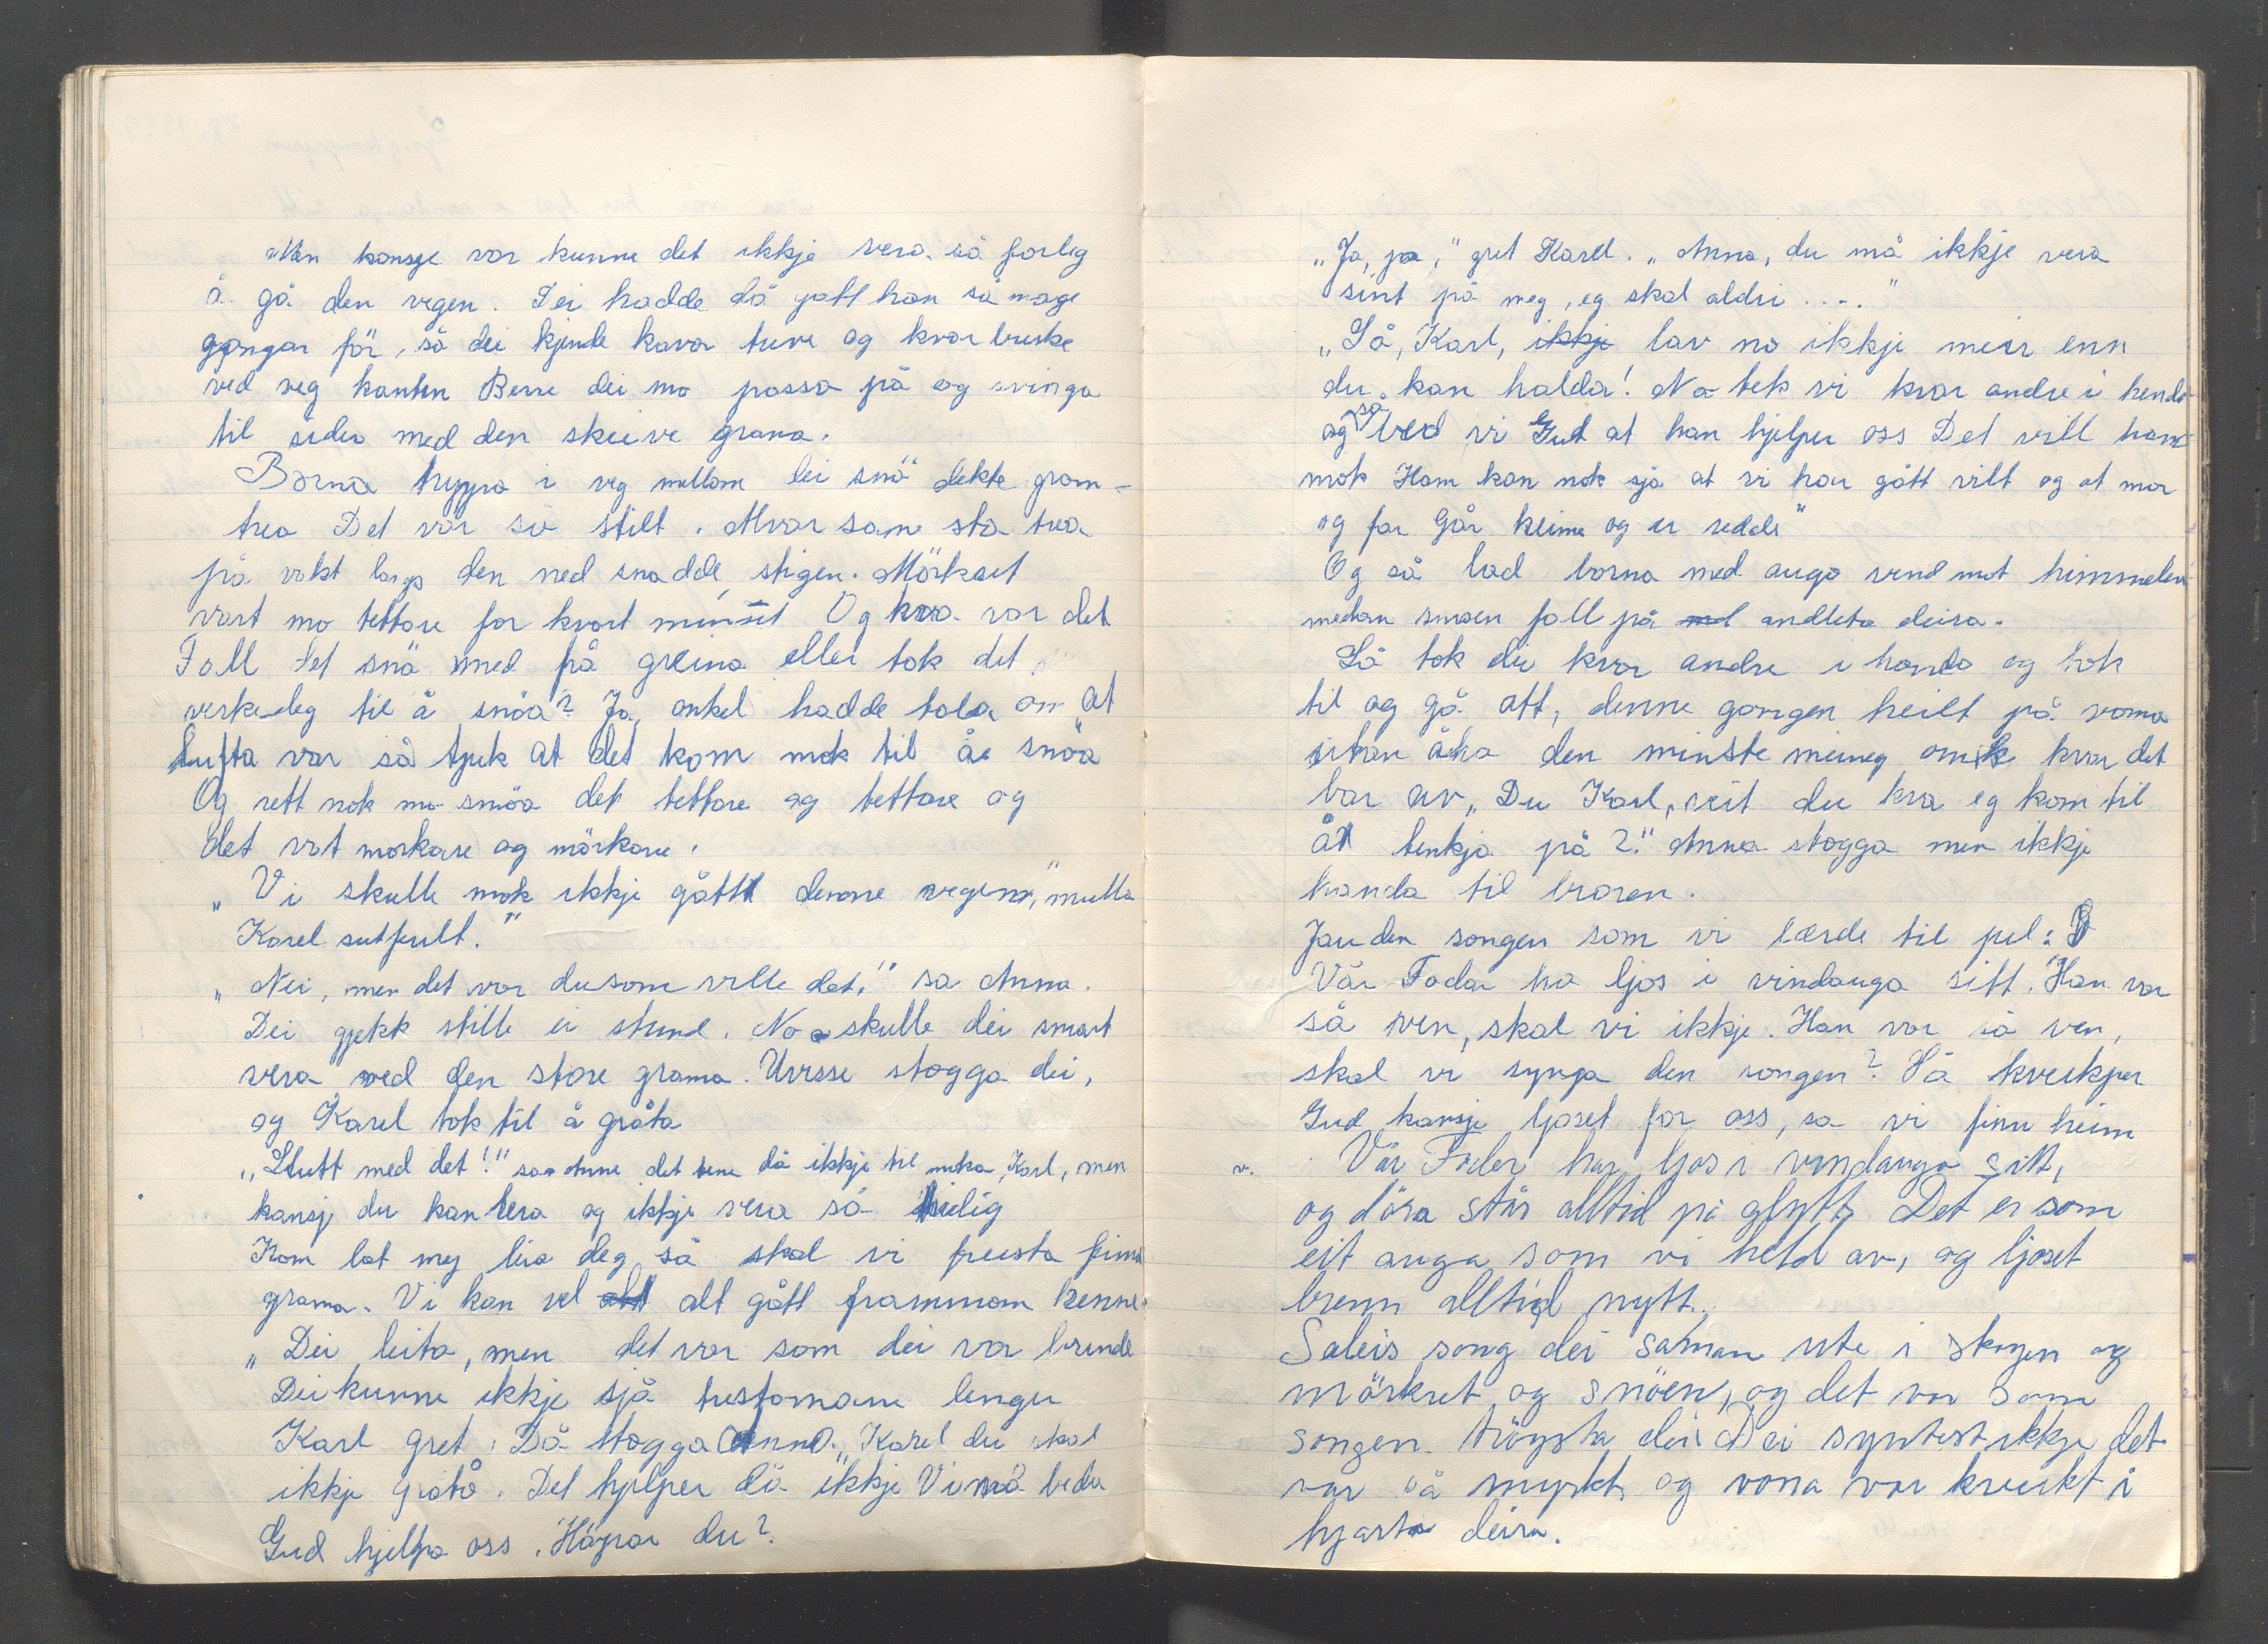 Men kansje var kunne det ikkje vera så farleg
å gå den vegen. Dei hadde då gått han så mage
gongar för, så dei kjende kavar tuve og kvar buske
ved veg kanten Berre dei mo passa på og svinga
til sides med den skeive grana.
Borna trippa i veg mellom dei snö dekte gran-
trea Det var so stilt. Alvor same sto trea
på vakt langs den ned snadde stigen. Mörkset
vart mo tettare for kvart minutt Og kva var det
Fall det snö ned frå greina eller tok det
verkeleg til å snöa? Ja, onkel hadde tala om at
lufta var så tjuk at det kom nok til å snöa
Og rett nok mo snöa det tettare og tettare og
det vat morkare og mörkare.
„Vi skulle nok ikkje gått denne vegen," mulla
Karel sutfullt."
„Nei, men det var du som ville det," sa Anna.
Dei gjekk stille ei stund. No skulle dei snart
vera ved den store grana. Uvisse stogga dei,
og Karel tok til å gråta
„Slutt med det!" sa Anne det tene då ikkje til noka, Karl, men
kansje du kan lera og ikkje vera så
Kom lat meg leia deg så skal vi freista finna
grana. Vi kan vel alt gått frammom henne.
„Dei leita, men det var som dei var blinde
Dei kunne ikkje sjå trestomane lenger
Karl gret. Då stogga Anna. „Karel du skal
ikkje gråta. Det hjelper då ikkje Vi må beda
Gud hjelpa oss. Höyrar du?
„Ja, ja," gret Karel. „Anna, du må ikkje vera
sint på meg, eg skal aldri ...."
„Så, Karl, ikkje lav no ikkje meir enn
du kan halda! No tek vi kvar andre i henda
og så bed vi Gud at han hjelper oss Det vill han
nok Ham kan nok sjå at vi har gått vilt og at mor
og far går heime og er redde"
Og så bad borna med auga vend mot himmelen
medan snøen fall på andleta deira.
Så tok dei kvar andre i handa og tok
til og gå att, denne gongen heilt på vona
utan åha den minste meineg om kvar det
bar av „Du Karl, veit du kva eg kom til
å tenkja på?" Anna stogga men ikkje
handa til broren.
Jau den songen som vi lærde til jul:
Vår Fadar ha ljos i vindauga sitt. Han var
så ven, skal vi ikkje. Han var så ven,
skal vi synga den songen? Så kveikjer
Gud kansje ljoset for oss, sa vi finn heim
v. Vår Fader har ljos i vindauga sitt,
og döra står alltid på glytt. Det er som
eit auga som vi held av, og ljoset
brenn alltid nytt.
Saleis song dei saman ute i skogen og
mörkret og snöen, og det var som
songen tröysta dei Dei syntest ikkje det
var så myrkt, og vona var kveikt i
hjarta deira.